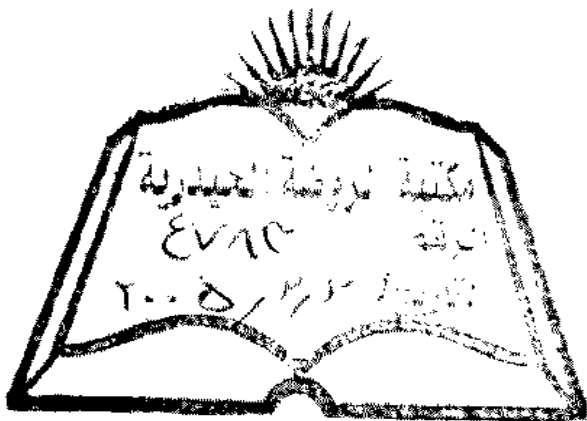 مكتبة الروضة الحيدرية
الرقم ٤٧٨٢
التاريخ ٢٠٠٥